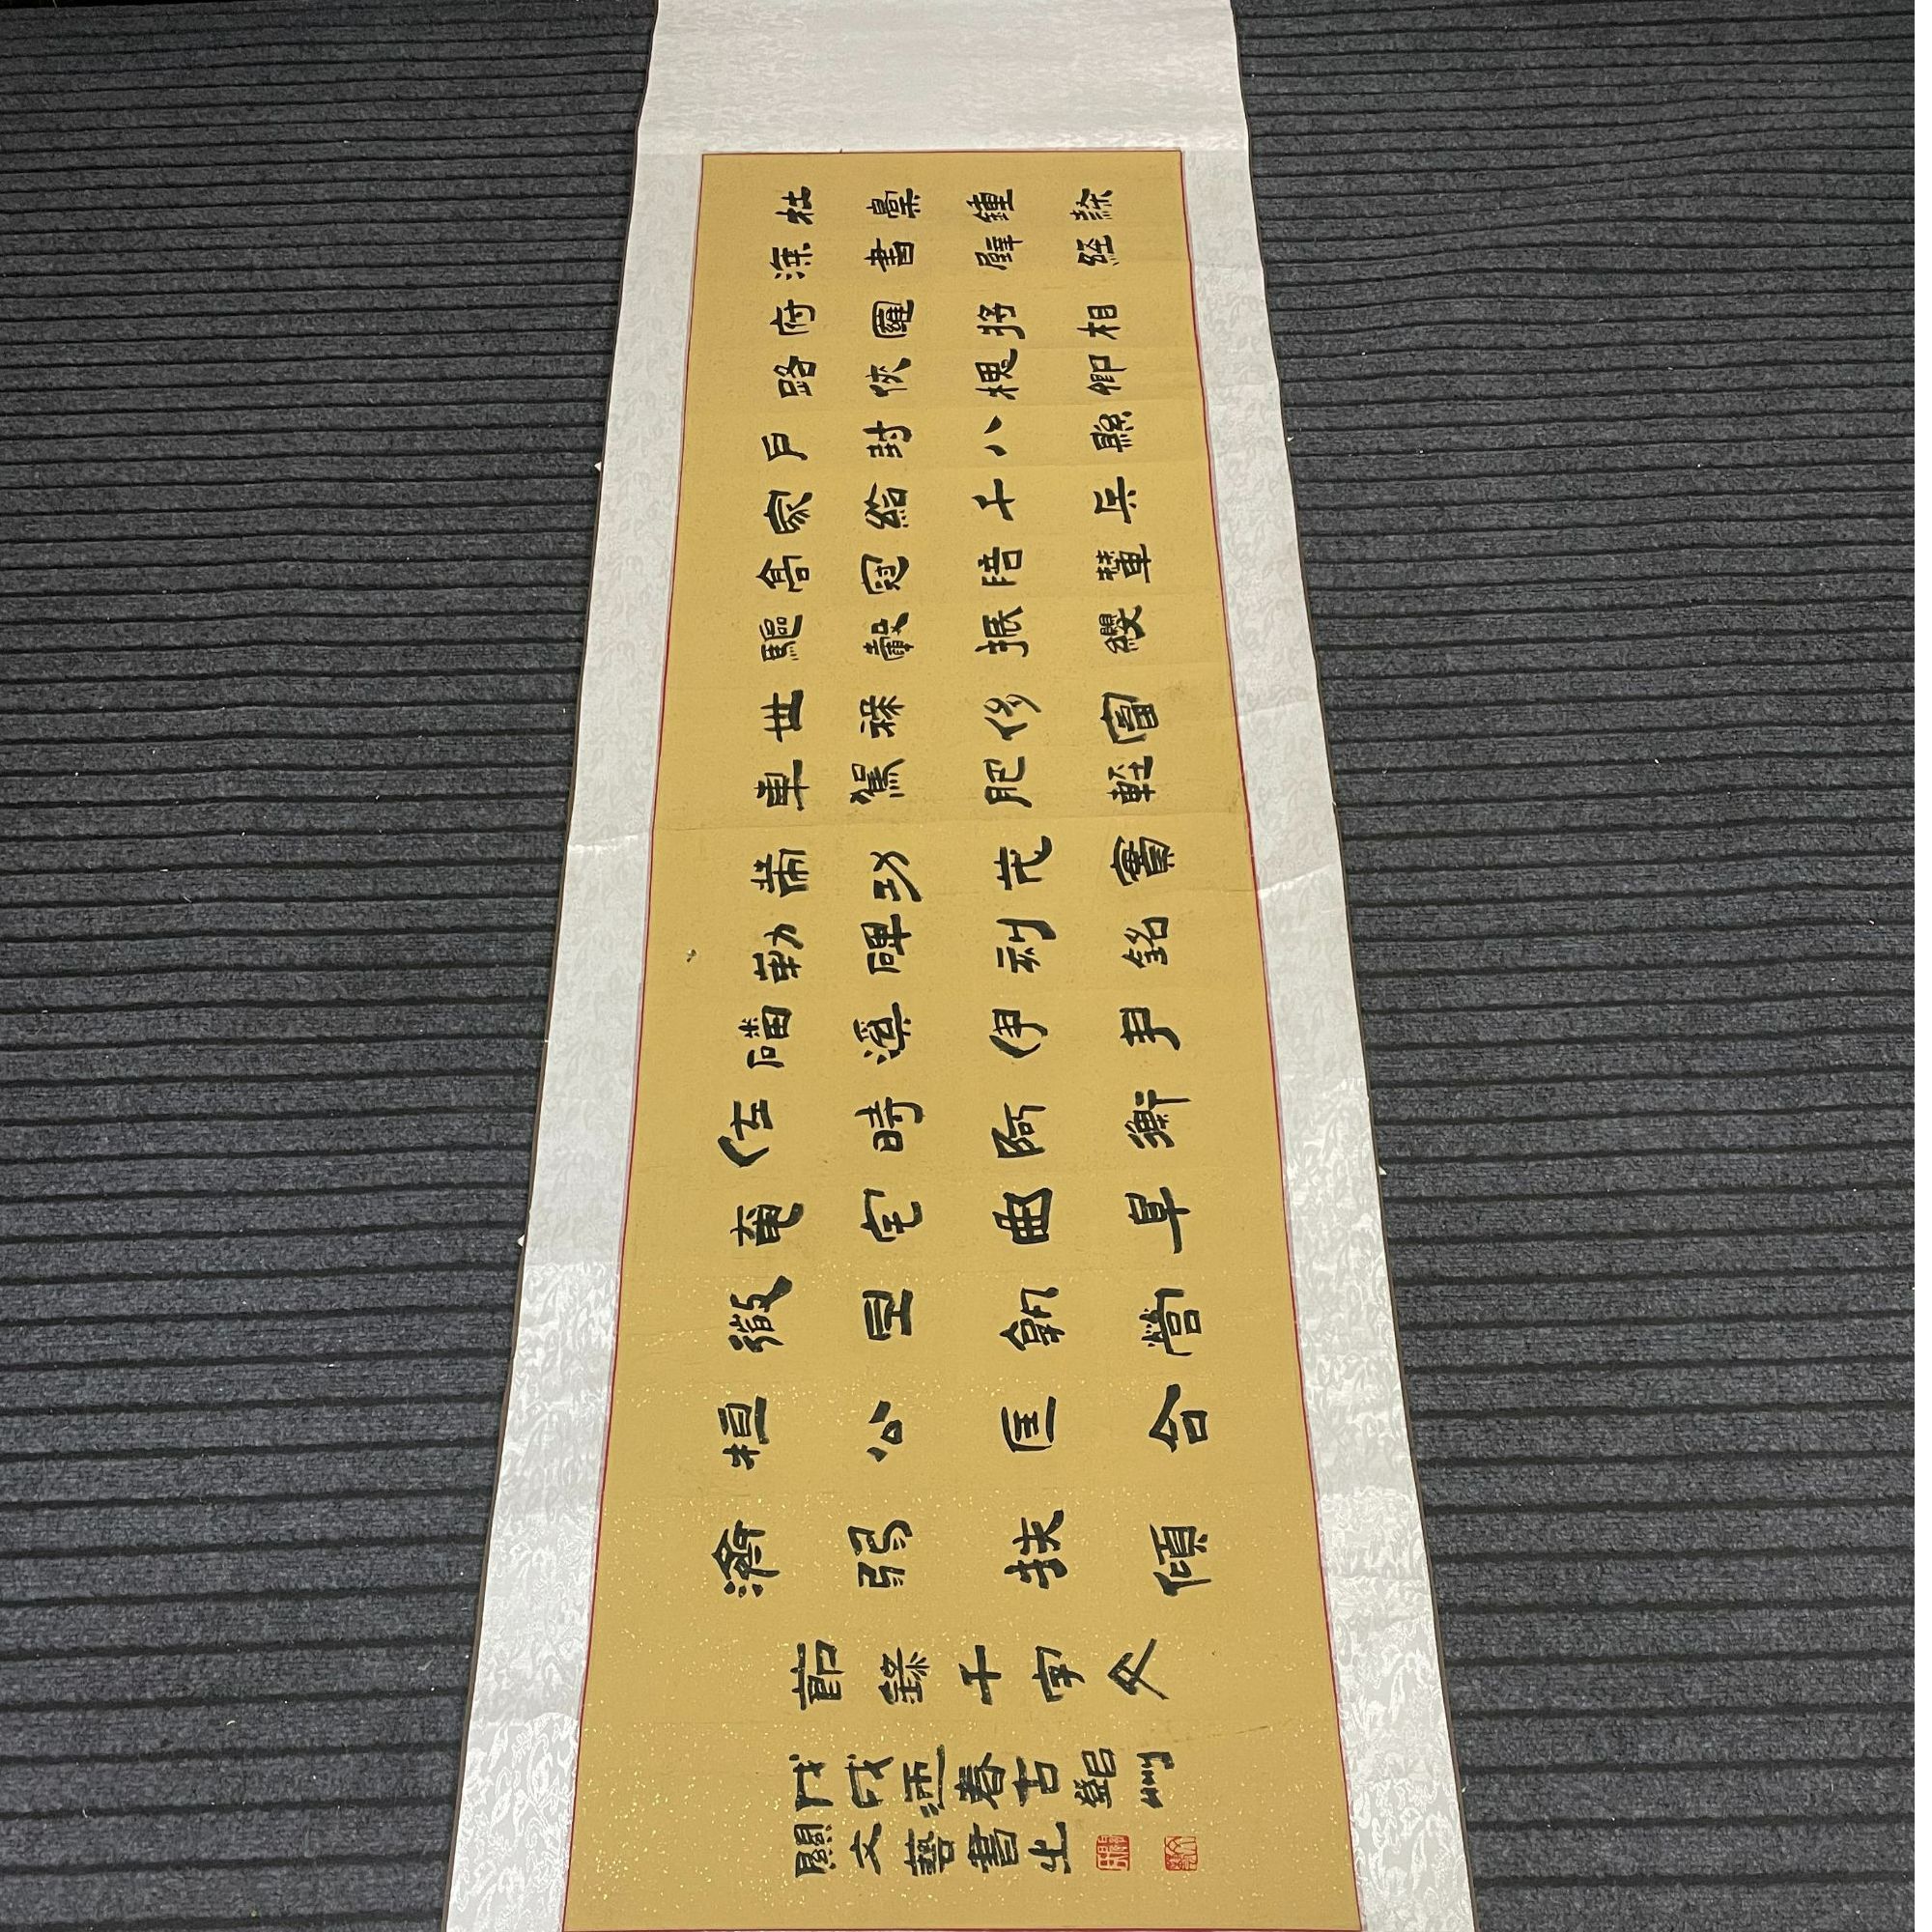 杜稾鍾隸
漆書壁經
府羅將相
路俠槐卿
戶封八縣
家給千兵
高冠陪輦
驅轂振纓
世祿侈富
車駕肥輕
策功茂實
勒碑刻銘
磻溪伊尹
佐時阿衡
奄宅曲阜
微旦孰營
桓公匡合
濟弱扶傾
節錄千字文
戊戌迎春古鄧州
關文藝書之